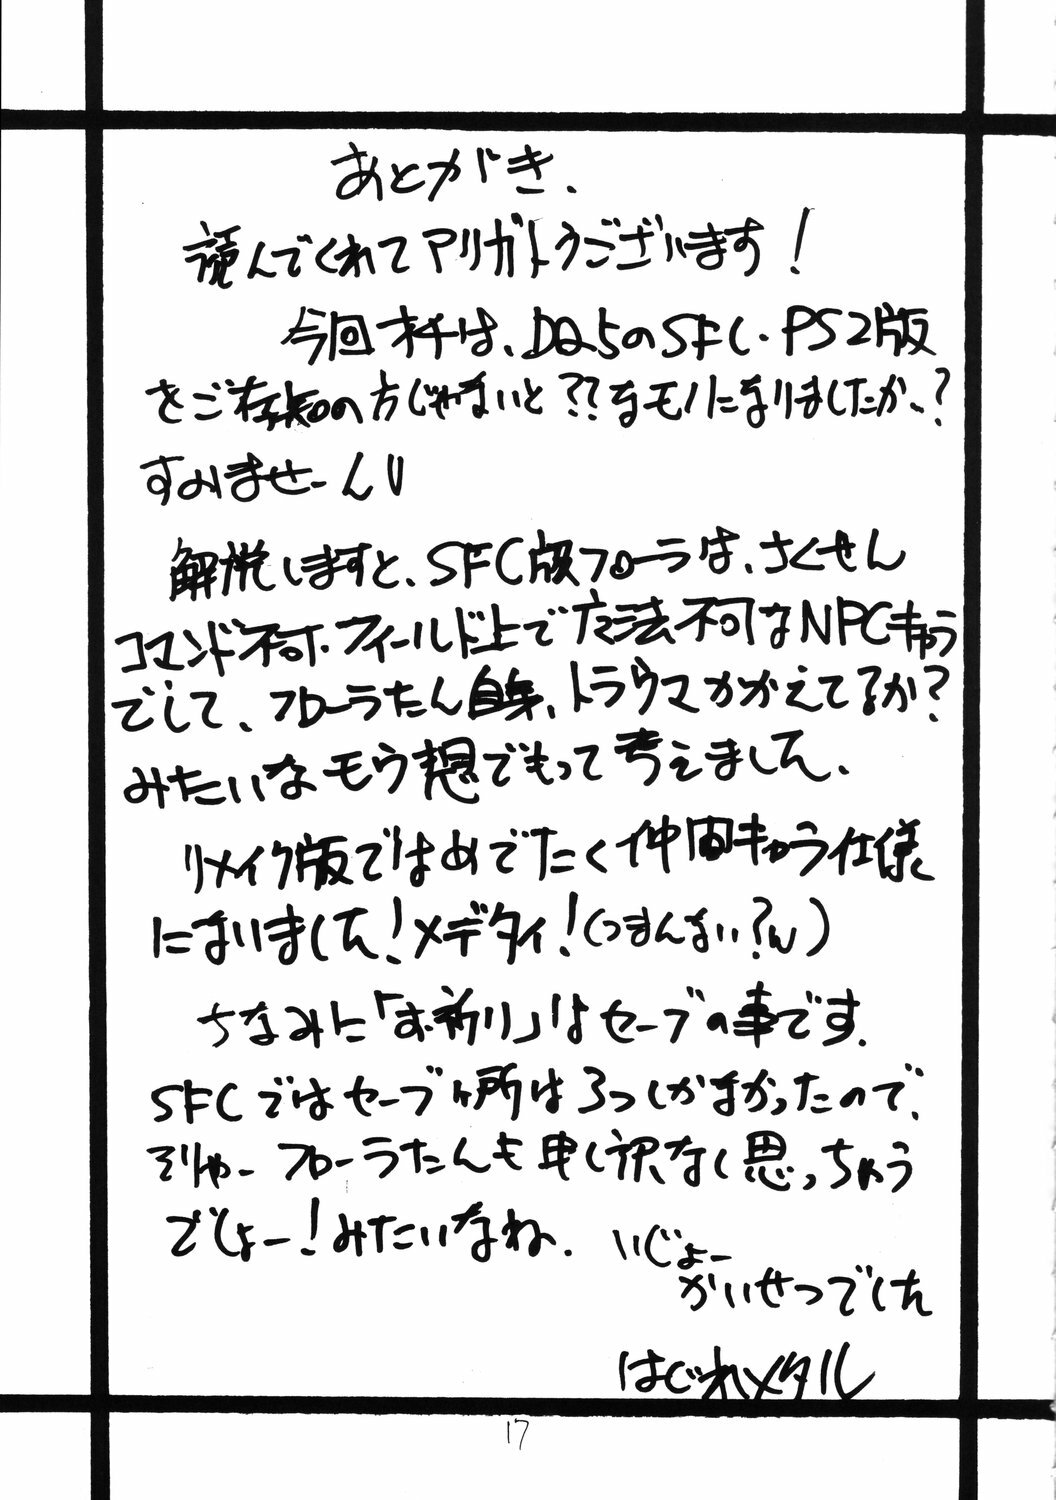 あとがき、
読んでくれてアリガトうございます！
今回オチは、DQ5のSFC・PS2版
をご存知の方じゃないと??なモノになりましたか、?
すみませーんU
解説しますと、SFC版フローラは、さくせん
コマンド不可・フィールド上で魔法不可なNPCキャラ
でして、フローラたん自身、トラウマかかえてるか?
みたいなモウ想でもって考えました、
リメイク版ではめでたく仲間キャラ仕様
になりました！メデタイ！(つまんない?w)
ちなみに「お祈り」はセーブの事です.
SFCではセーブヶ所は3つしかなかったので、
そりゃーフローラたんも申し訳なく思っちゃう
でしょー！みたいなね、
いじょー
かいせつでした
はぐれメタル
17